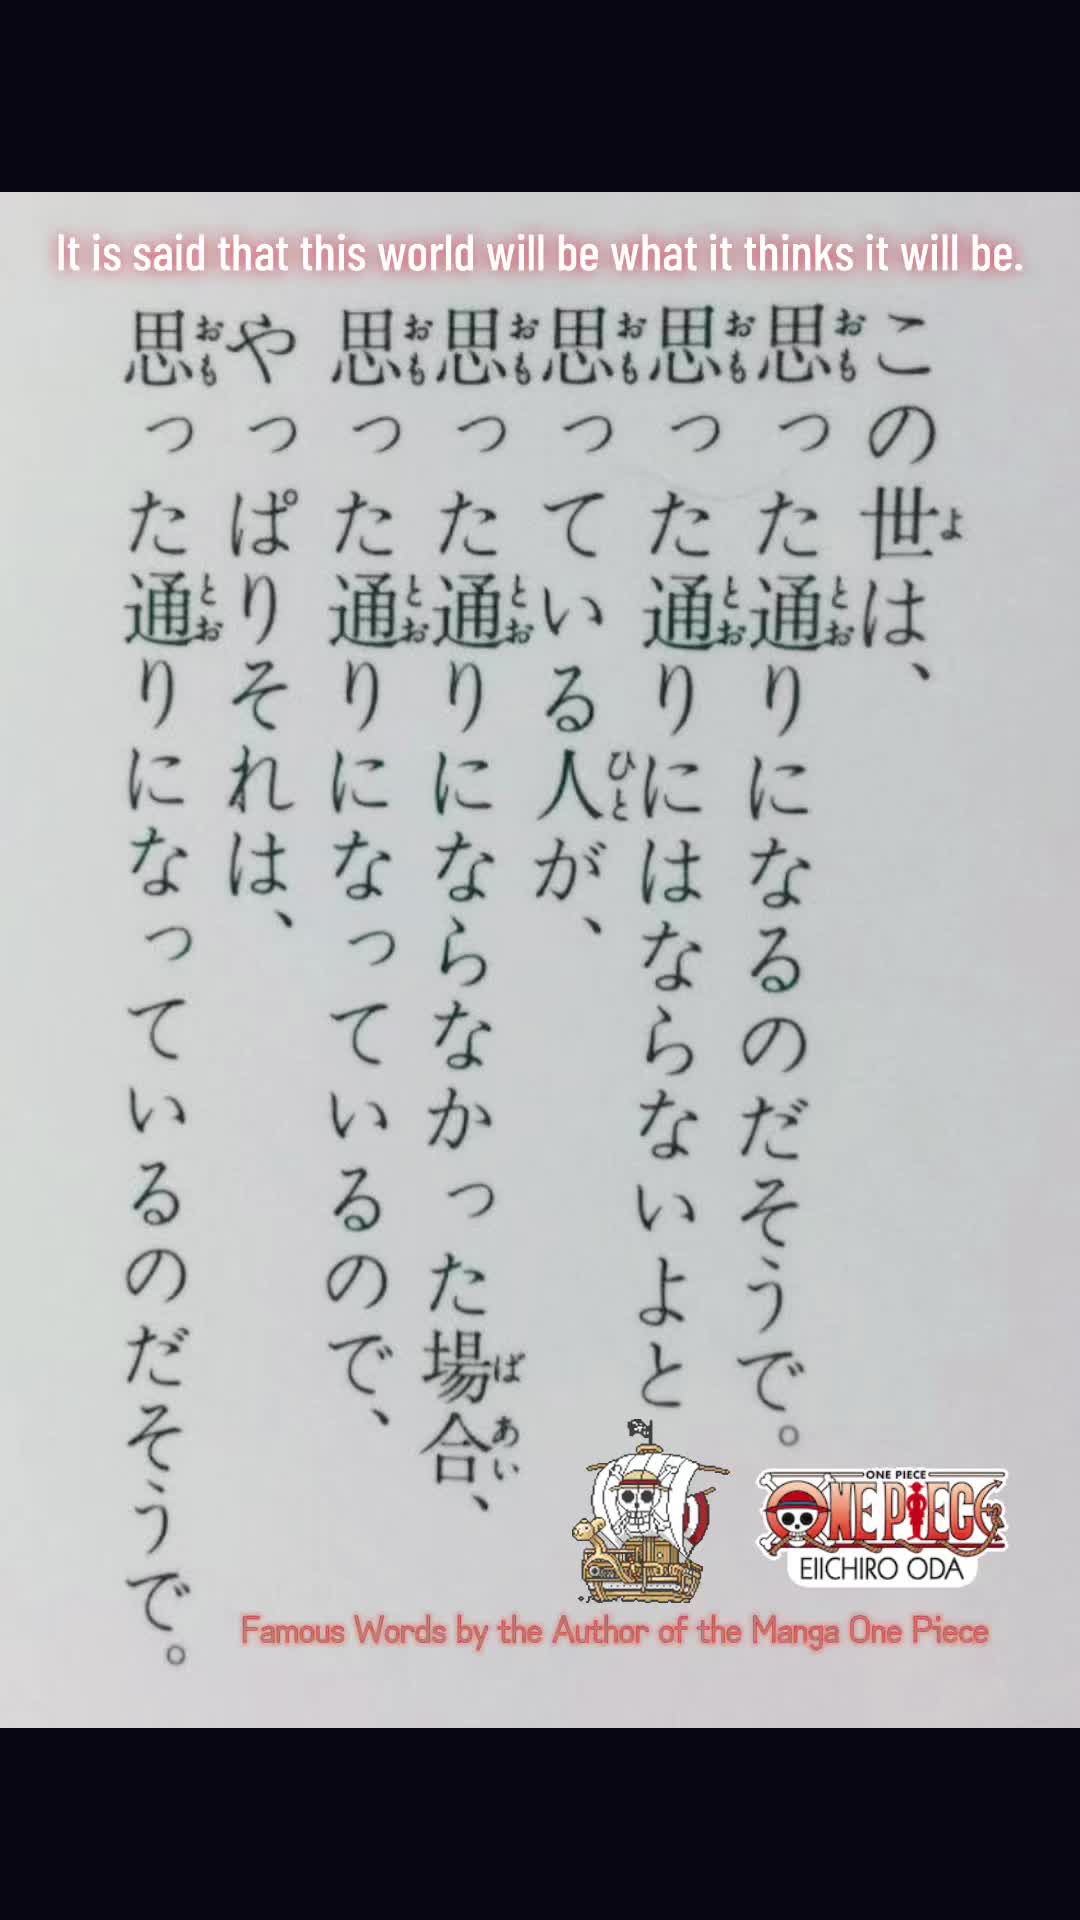 It is said that this world will be what it thinks it will be.
この世は、
思った通りになるのだそうで。
思った通りにはならないよと
思っている人が、
思った通りにならなかった場合、
思った通りになっているので、
やっぱりそれは、
思った通りになっているのだそうで。
ONE PIECE
ONE PIECE
EIICHIRO ODA
Famous Words by the Author of the Manga One Piece